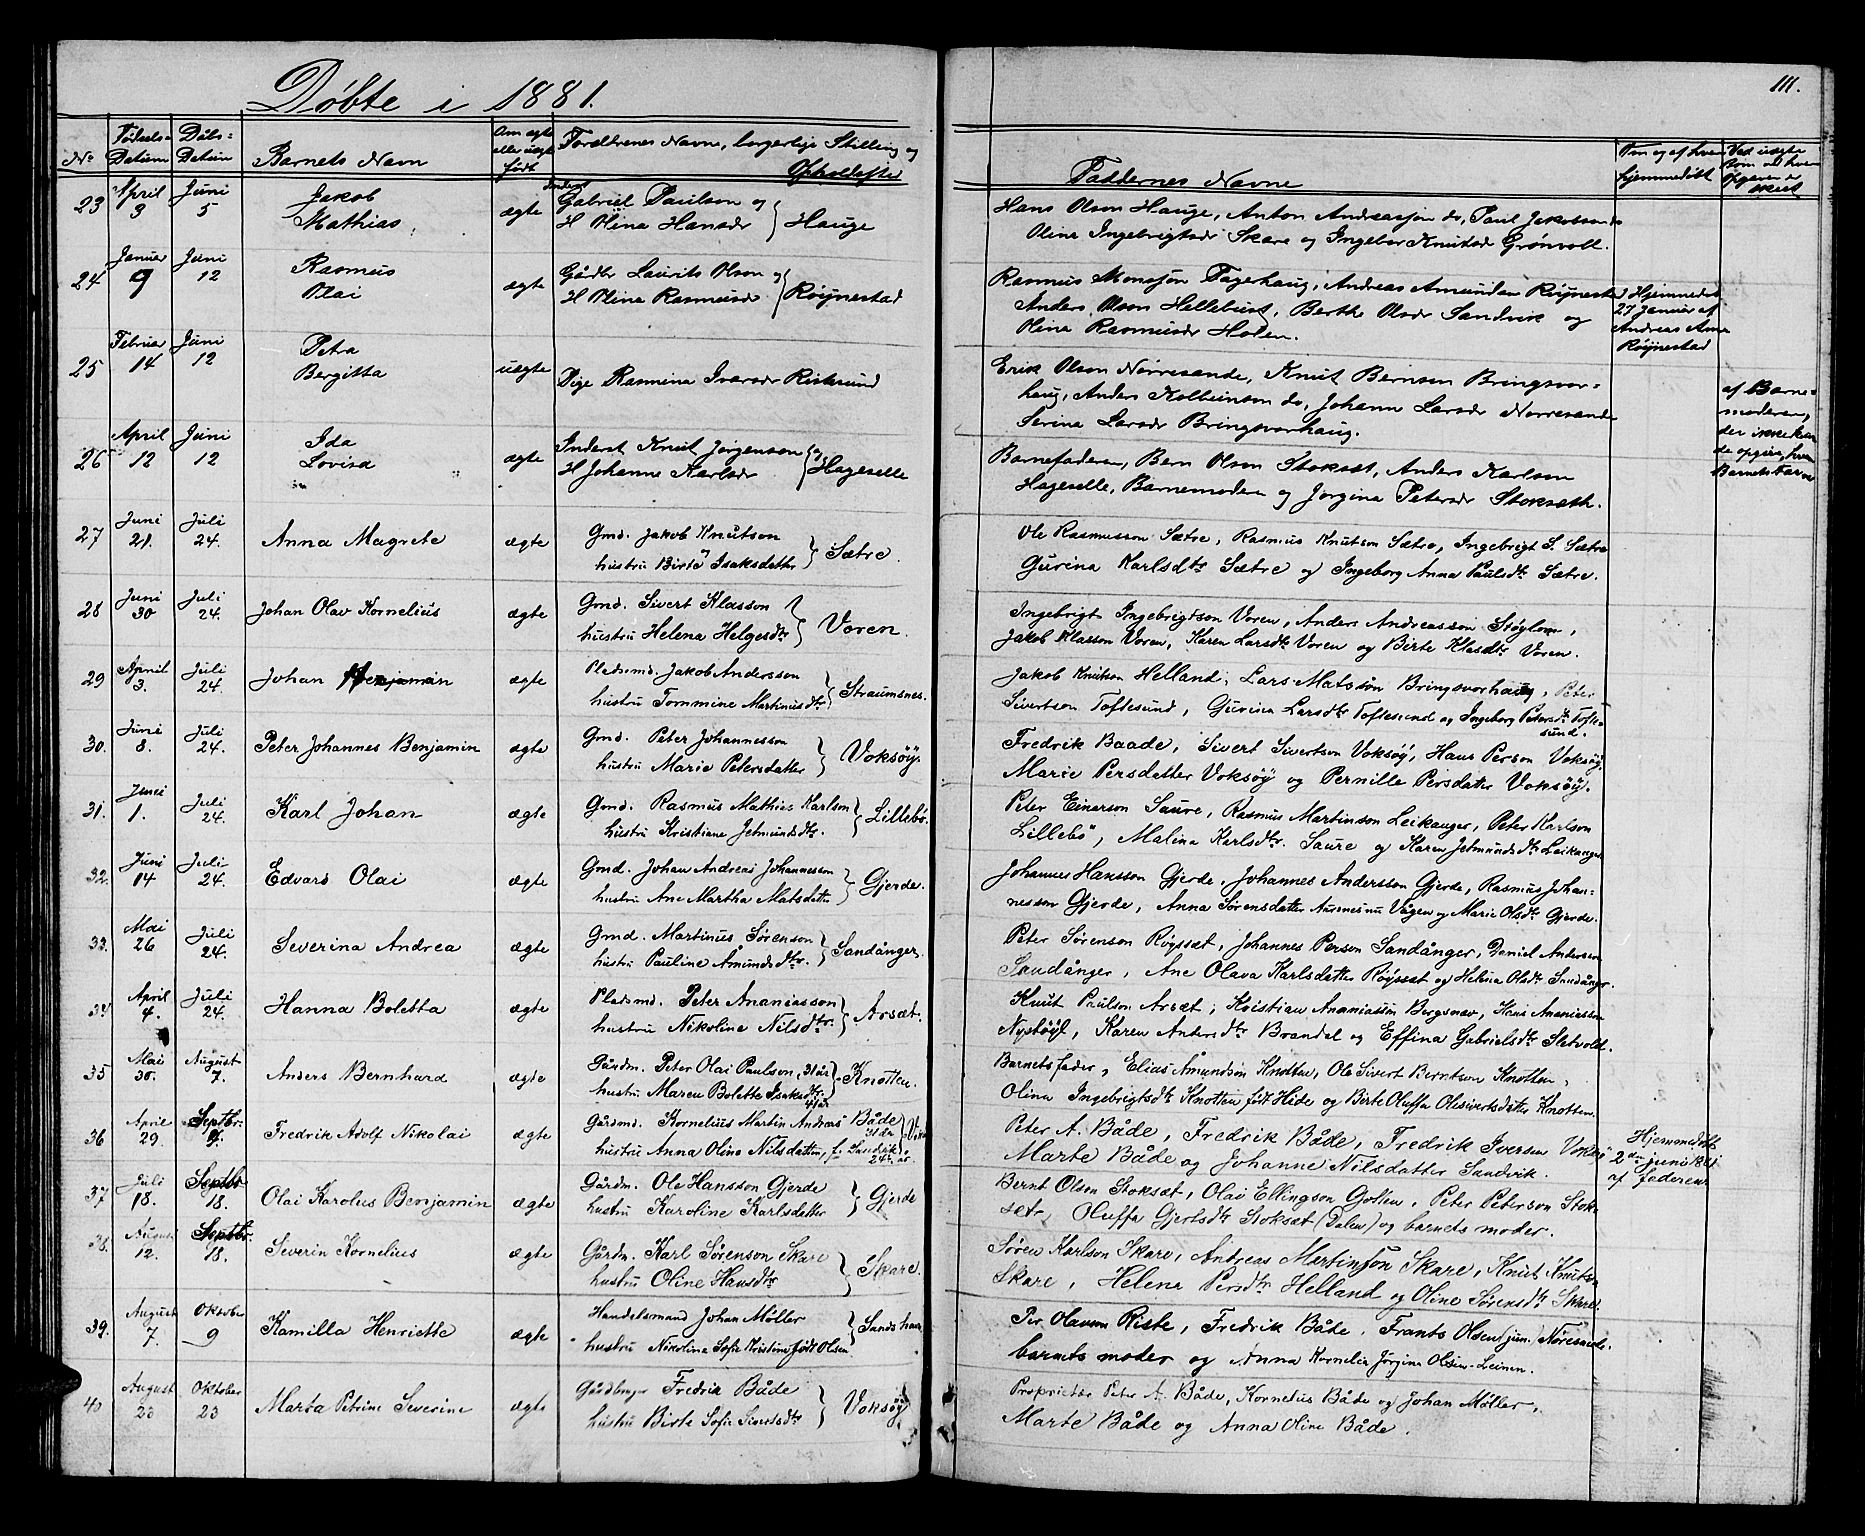 Døbte i 1881.
111.
No Fødsels-Datum Døbs-Datum Barnets Navn Om ægte eller uægte født Forældrenes Navne, borgerlige Stilling og Opholdssted Faddernes Navne Om og af hvem hjemmedøbt Ved uægte
23 April 3 Juni 5 Jakob Mathias ægte Inderst Gabriel Paulson og H Olina Hansdr Hauge
Hans Olson Hauge, Anton Andreasson do, Paul Jakobson do
Olina Ingebrigtsdr Skare og Ingebor Knutsdr Grønvoll.
24 Januar 9 Juni 12 Rasmus Olai ægte Gårdbr Laurits Olson og H Olina Rasmusdr Røynestad
Rasmus Monsson Fagerhaug, Andreas Amundson Røynestad
Anders Olson Hellebust, Berthe Olsdr Sandvik og
Olina Rasmusdr Holen.
Hjemmedøbt 27 Januar af Andreas Am. Røynestad
25 Februar 14 Juni 12 Petra Bergitta uægte Pige Rasmina Ivarsdr Ristesund
Erik Olson Nørresande, Knut Bernson Bringsvor-
haug, Anders Kolbeinson do, Johanne Larsdr Nørresande
Serina Larsdr Bringsvorhaug.
af Barne-
moderen,
26 April 12 Juni 12 Ida Lovisa ægte Inderst Knut Jørgenson og H Johanne Karlsdr Hageselle
Barnefaderen, Bern Olson Stoksæt, Anders Karlson
Hageselle, Barnemoderen og Jørgina Petersdr Stokseth.
27 Juni 21. Juli 24. Anna Magrete ægte Gmd. Jakob Knutson hustru Birte Isaksdatter Sætre.
Ole Rasmusson Sætre, Rasmus Knutson Sætre, Ingebrigt S. Sætre
Gurina Karlsdtr Sætre og Ingeborg Anna Paulsdtr Sætre.
28 Juni 30 Juli 24. Johan Olav Kornelius ægte Gmd. Sivert Klasson hustru Helena Helgesdtr Voren.
Ingebrigt Ingebrigtson Voren, Anders Andreasson Støylom,
Jakob Klasson Voren, Karen Larsdtr Voren og Birte Klasdtr Voren.
29 April 3. Juli 24. Johan Benjamin ægte Pladsmd. Jakob Andersson hustru Tommine Martinusdtr Straumsnes.
Jakob Knutson Helland, Lars Matsson Bringsvorhaug, Peter
Sivertson Toftesund, Gurina Larsdtr Toftesund og Ingeborg Petersdtr Tofte-
sund.
30. Juni 8. Juli 24. Peter Johannes Benjamin ægte Gmd. Peter Johannesson hustru Marie Petersdatter Voksøy.
Fredrik Baade, Sivert Sivertson Voksøy, Hans Person Voksøy,
Marie Persdatter Voksøy og Pernille Persdatter Voksøy.
31. Juni 1. Juli 24. Karl Johan ægte Gmd. Rasmus Mathias Karlson hustru Kristiane Jetmundsdtr. Lillebø.
Peter Einerson Saure, Rasmus Martinson Leikanger, Peter Karlson
Lillebø, Malina Karlsdtr. Saure og Karen Jetmundsdtr Leikanger
32. Juni 14 Juli 24. Edvard Olai ægte Gmd. Johan Andreas Johannesson hustru Ane Martha Matsdatter Gjerde.
Johannes Hansson Gjerde, Johannes Andersson Gjerde, Rasmus Johan-
nesson Gjerde, Anna Sørensdatter Aurnesnu Vågen og Marie Olsdtr Gjerde.
33. Mai 26 Juli 24. Severina Andrea ægte Gmd. Martinus Sørenson hustru Pauline Amundsdtr. Sandånger.
Peter Sørenson Røyset, Johannes Person Sandånger, Daniel Anderson
Sandånger, Ane Olava Karlsdatter Røyset og Helena Olsdtr Sandånger.
34 April 4. Juli 24. Hanna Boletta ægte Pladsmd. Peter Ananiasson hustru Nikoline Nilsdtr. Arsæt.
Knut Paulson Arsæt, Kristian Ananiasson Bergsnev, Hans Ananiasson
Nystøyl, Karen Andersdtr Brandal og Effina Gabrielsdtr Sletvold.
35 Mai 30. August 7. Anders Bernhard ægte Gårdm. Peter Olai Paulson, 31 år hustru Maren Bolette Isaksdtr 41 år Knotten.
Barnets fader, Elias Amundson Knotten, Ole Sivert Berntson Knotten,
Olina Ingebrigtsdtr Knotten født Hide og Birte Oluffa Olesivertsdatter Knotten.
36 April 29. Septbr. 9. Fredrik Adolf Nikolai ægte Gårdmd. Kornelius Martin Andreas Både 31 år hustru Anna Oline Nilsdatter, f. Sandvik 24 år
Peter A. Både, Fredrik Både, Fredrik Iverson Voksøy
Marte Både og Johanne Nilsdatter Sandvik.
Hjemmedøbt 2den juni 1881 af faderen
37 Juli 18. Septbr 18. Olai Karolius Benjamin ægte Gårdm. Ole Hansson Gjerde hustru Karoline Karlsdatter Gjerde
Bernt Olson Stoksæt, Olai Ellingson Golten, Peter Peterson Stok-
sæt, Oluffa Gjertsdtr Stoksæt (Dalen) og barnets moder.
38. August 12. Septbr. 18. Severin Kornelius ægte Gårdm. Karl Sørenson Skare hustru Oline Hansdtr Skare.
Søren Karlson Skare, Andreas Martinson Skare, Knut Knutson
Skare, Helene Persdtr Helland og Oline Sørensdtr Skare.
39. August 7. Oktober 9 Kamilla Henriette ægte Handelsmand Johan Møller hustru Nikolina Sofie Kristine født Olsen Sandshavn
Per Olavson Riste, Fredrik Både, Frants Olsen (jun.) Nøresande.
barnets moder og Anna Kornelia Jørgine Olsen-Leinen.
40 August 23 Oktober 23 Marta Petrine Severine ægte Gårdbruger Fredrik Både hustru Birte Sofie Sivertsdtr Voksøy
Proprietær Peter A. Både, Kornelius Både og Johan Møller,
Marte Både og Anna Oline Både.